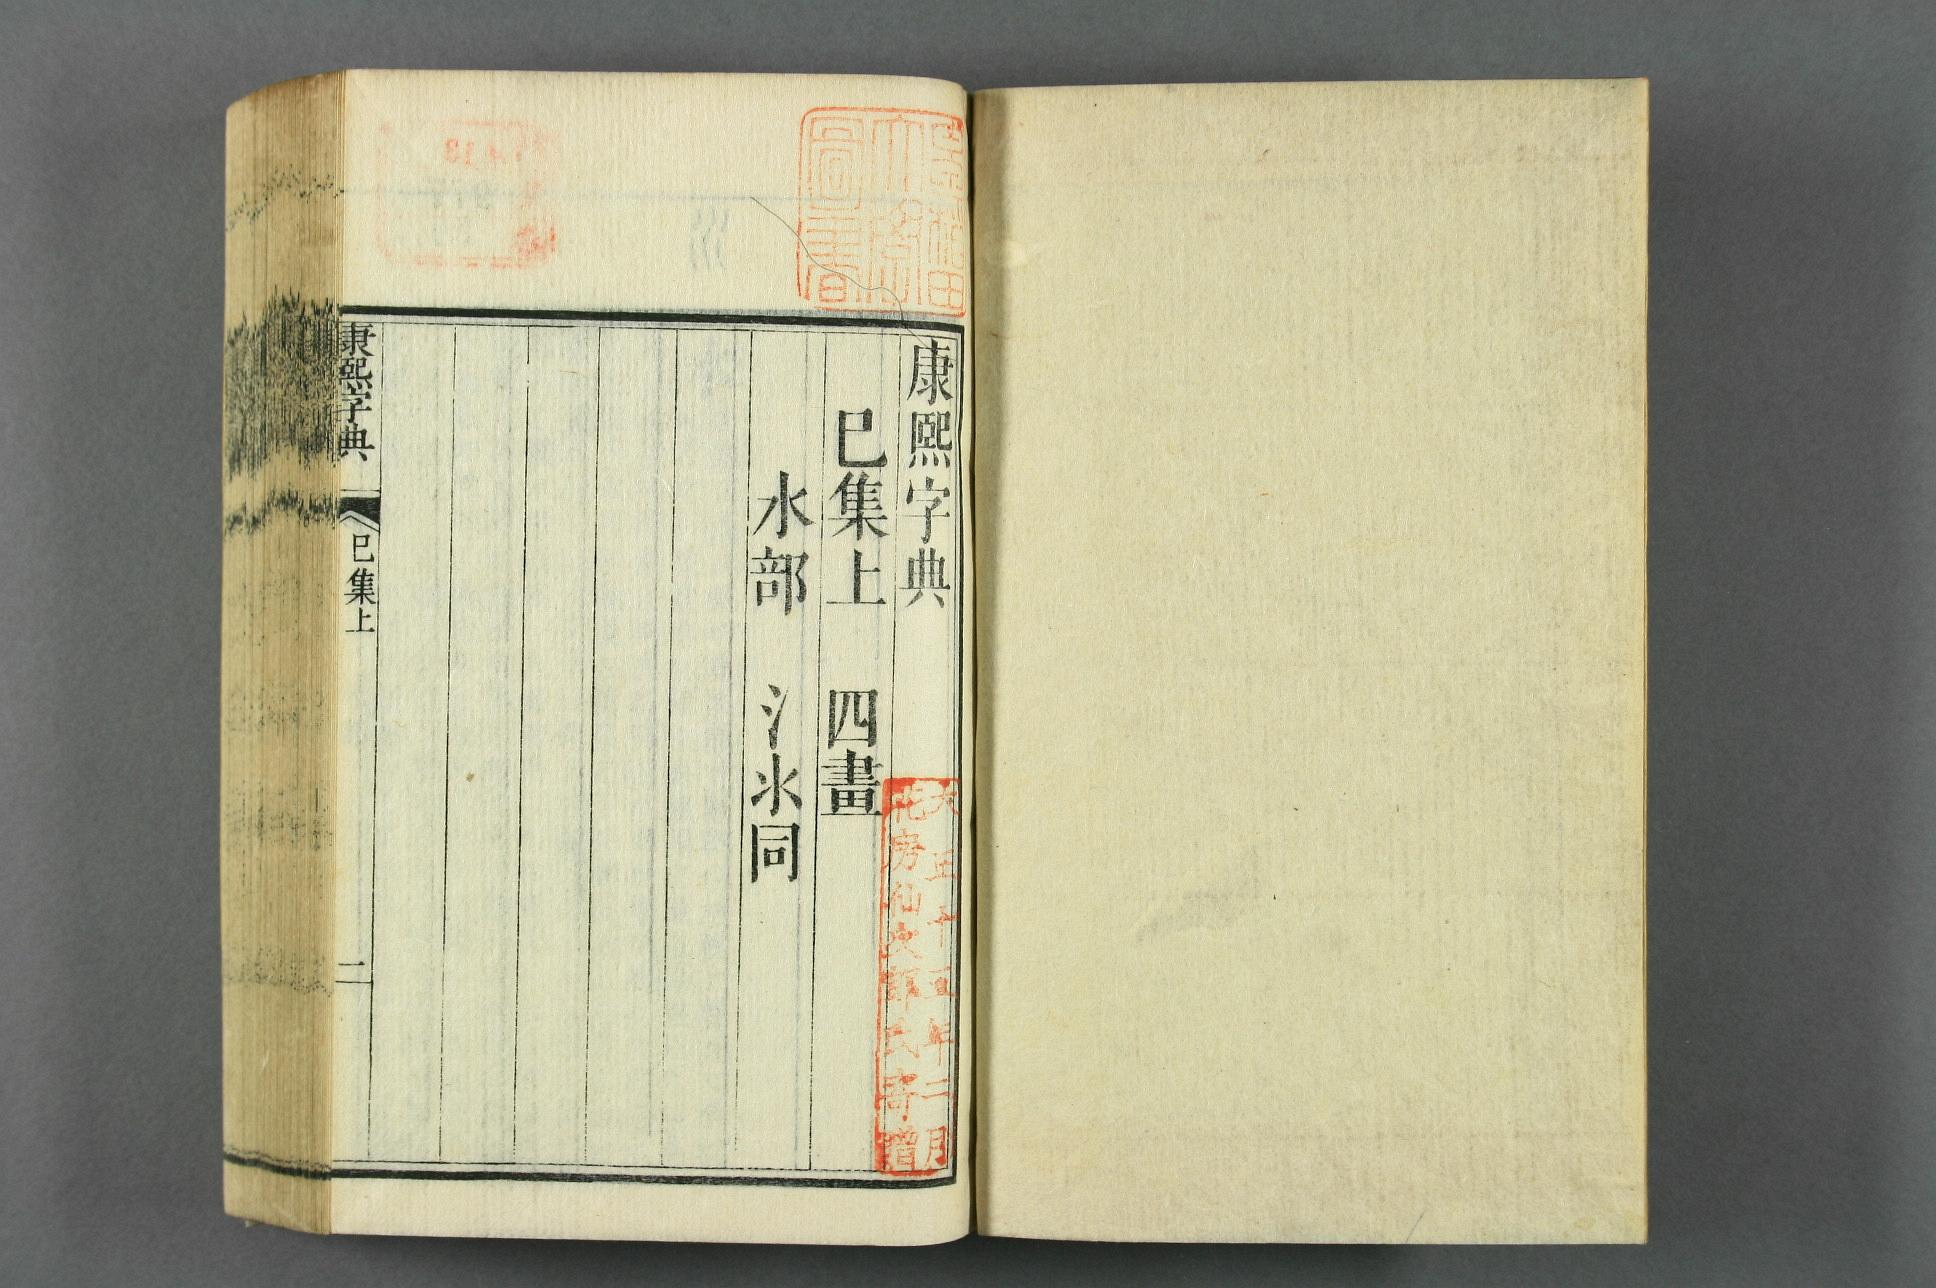 康熙字典
巳集上 四畫
水部 氵氺同
康熙字典
巳集上
二
大正十五年二月
花房仙次郎氏寄贈
早稲田
大學
圖書